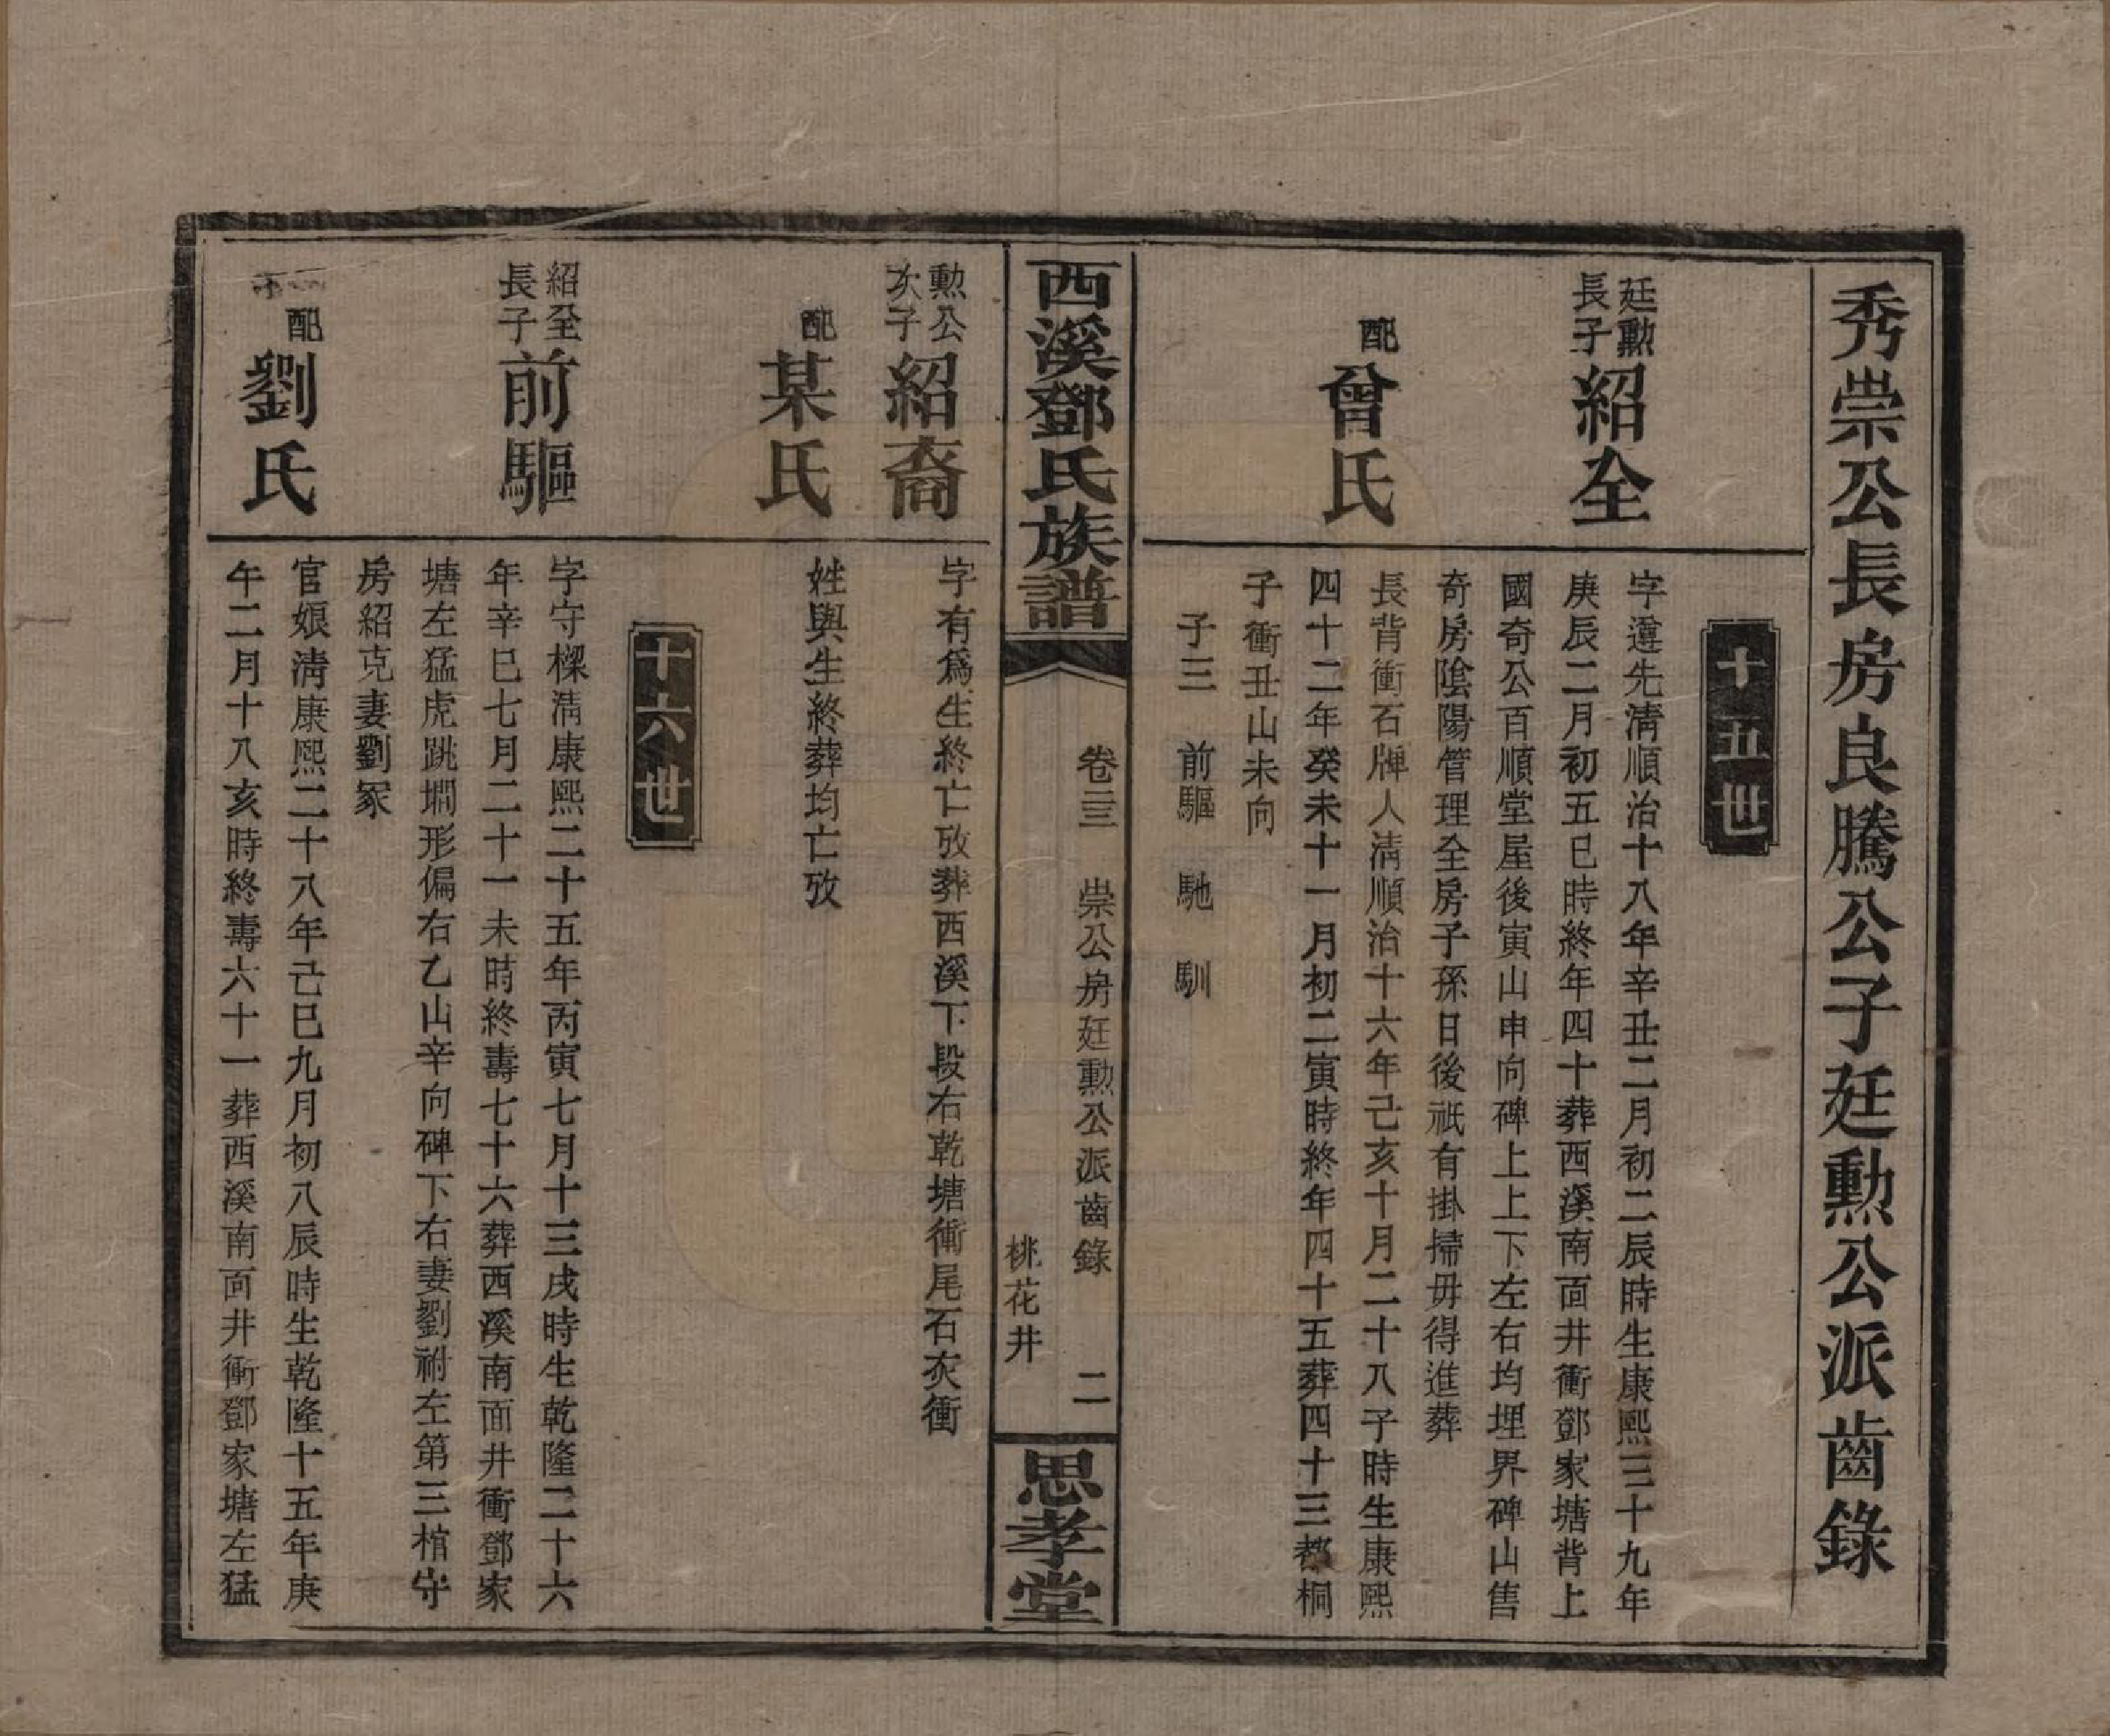 秀崇公長房良騰公子廷勳公派齒錄
十五世
廷勳長子
紹全
字遵先清順治十八年辛丑二月初二辰時生康熙三十九年
庚辰二月初五巳時終年四十葬西溪南面井衝鄧家塘背上
國奇公百順堂屋後寅山申向碑上上下左右均埋界碑山售
奇房陰陽管理全房子孫日後祇有掛掃毋得進葬
配
曾氏
長背衝石牌人清順治十六年己亥十月二十八子時生康熙
四十二年癸未十一月初二寅時終年四十五葬四十三都桐
子衝丑山未向
子三 前驅 馳 馴
西溪鄧氏族譜
卷三 崇公房廷勳公派齒錄 二
桃花井
思孝堂
勳公次子
紹裔
字有爲生終亡攷葬西溪下段右乾塘衝尾石灰衝
配
某氏
姓與生終葬均亡攷
十六世
紹全長子
前驅
字守樑清康熙二十五年丙寅七月十三戌時生乾隆二十六
年辛巳七月二十一未時終壽七十六葬西溪南面井衝鄧家
塘左猛虎跳澗形偏右乙山辛向碑下右妻劉祔左第三棺守
房紹克妻劉冢
配
劉氏
官娘清康熙二十八年己巳九月初八辰時生乾隆十五年庚
午二月十八亥時終壽六十一葬西溪南面井衝鄧家塘左猛